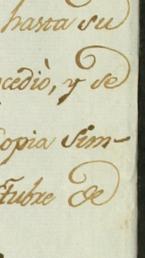 hasta su
cediò, y se
copia sim-
tubre de